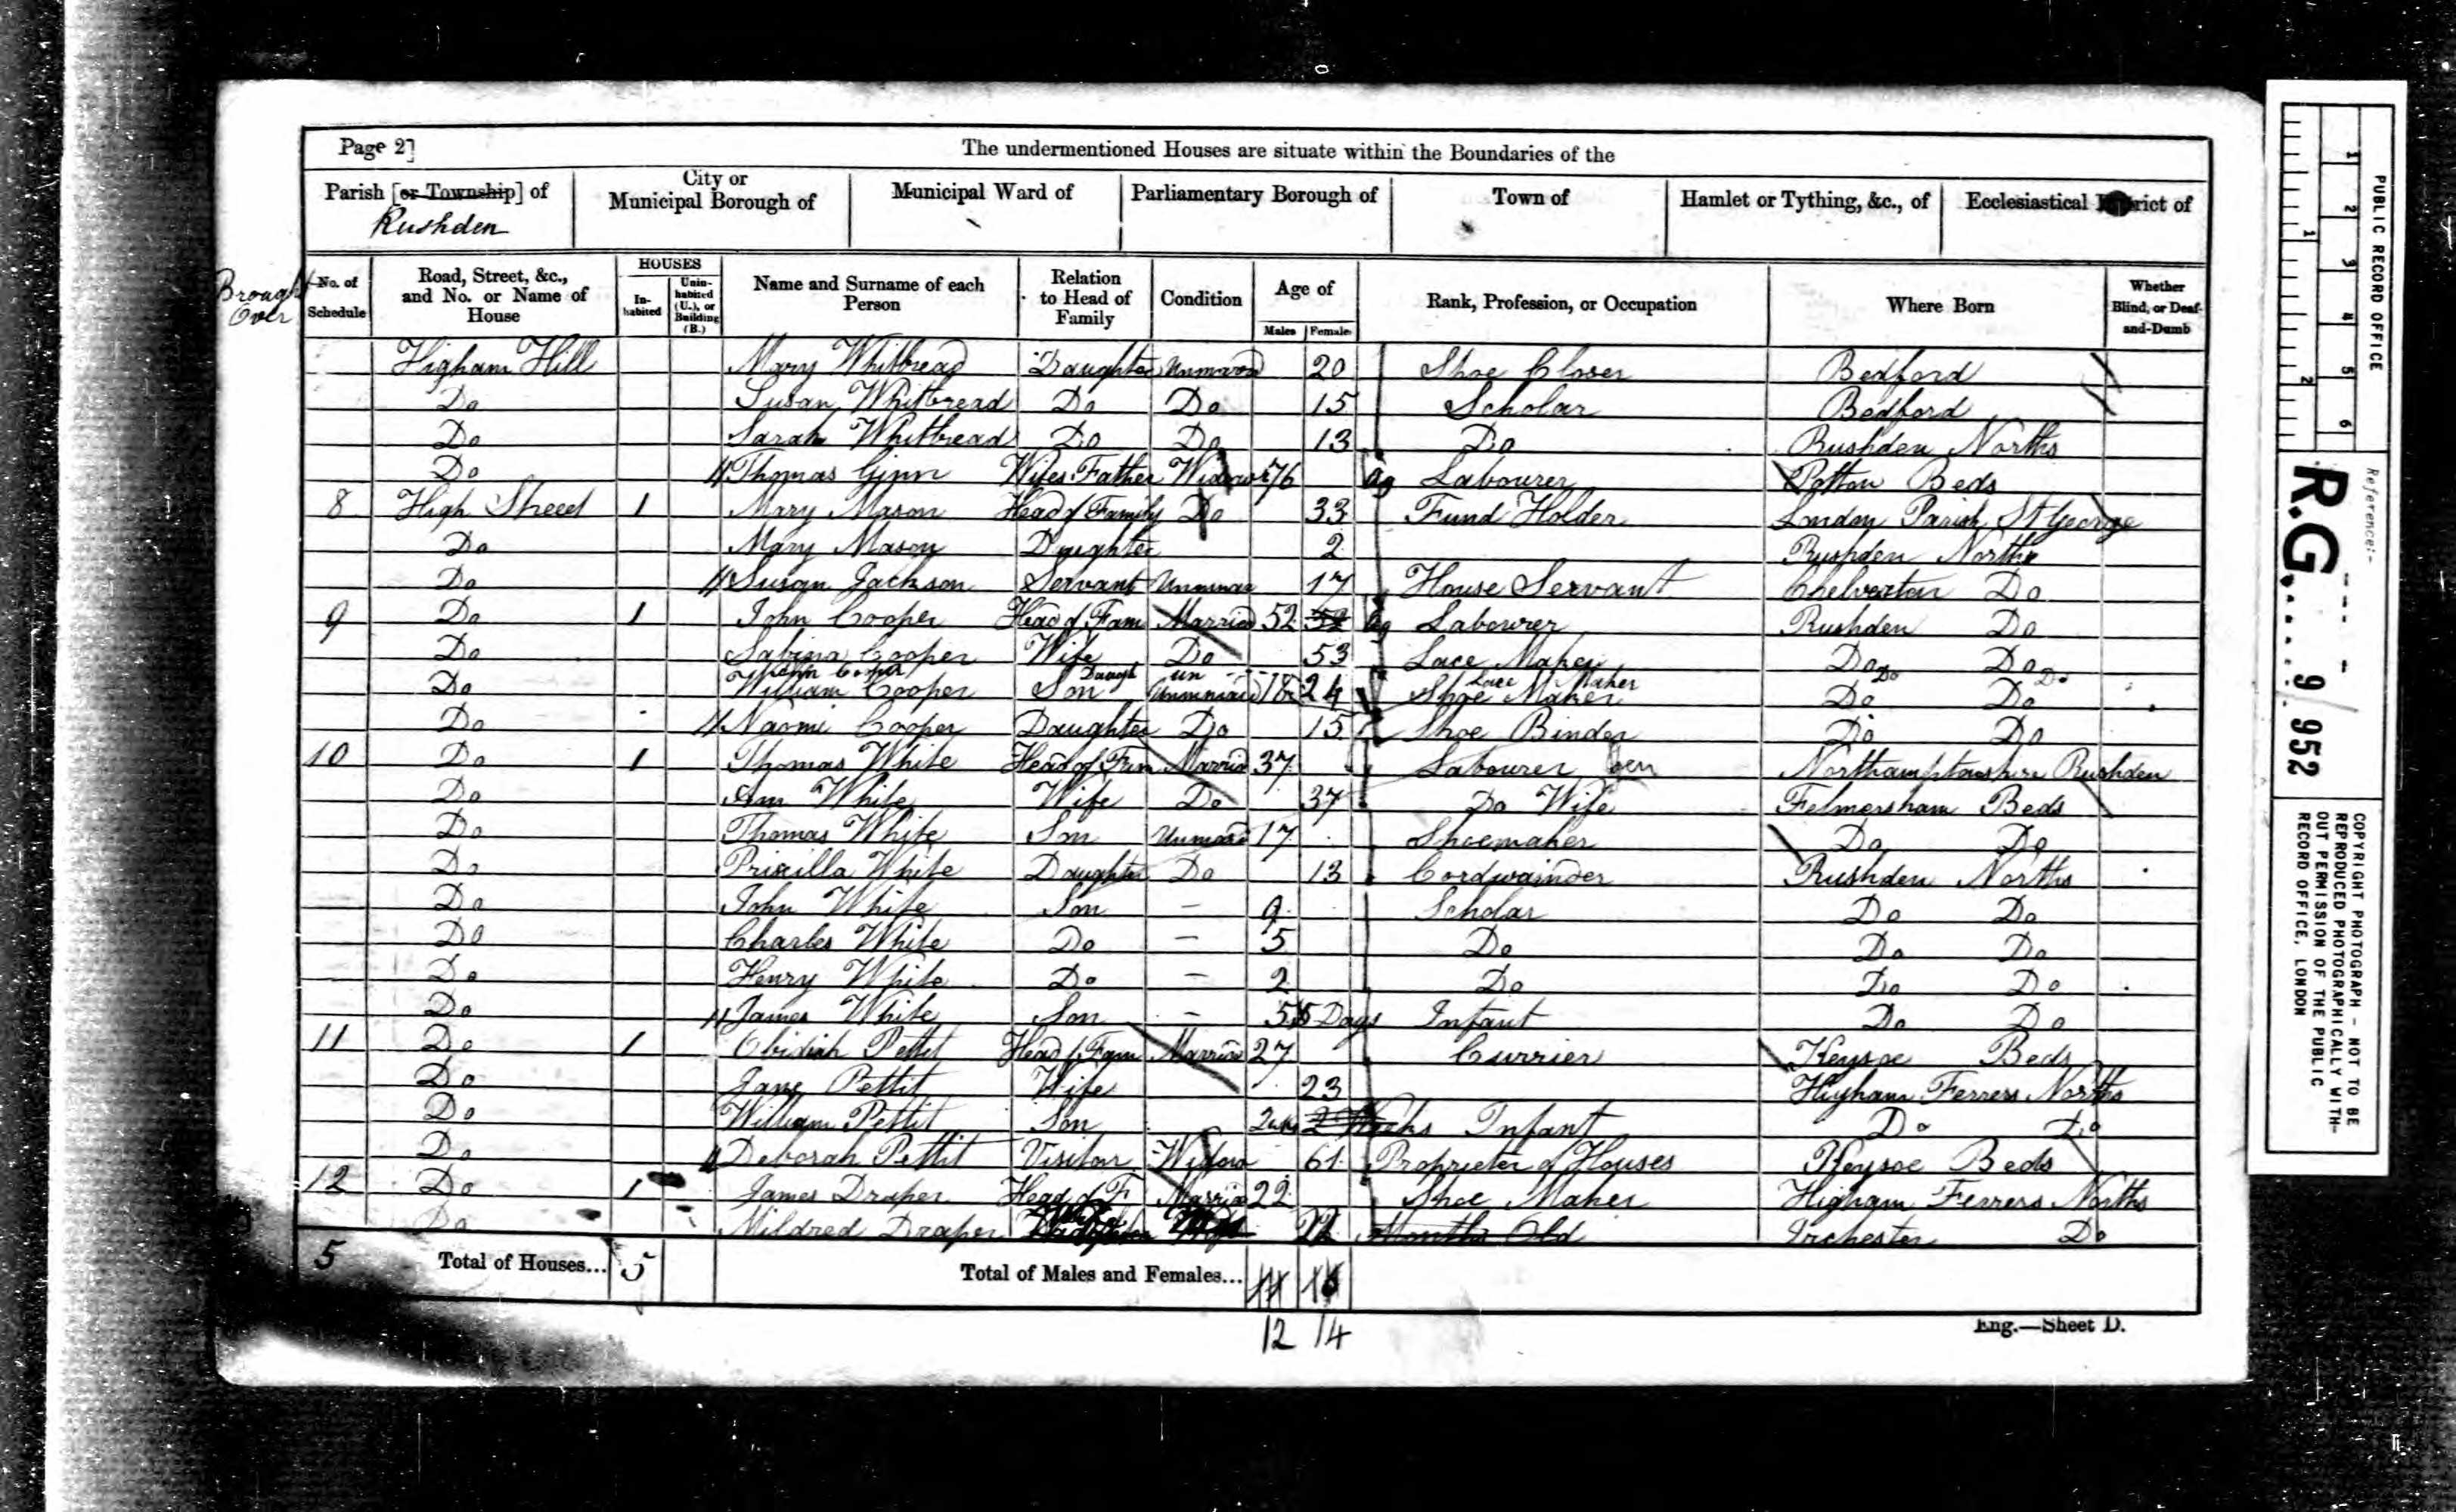 Page 2]
The undermentioned Houses are situate within the Boundaries of the
Parish [or Township] of
Rushden
City or
Municipal Borough of
Municipal Ward of
Parliamentary Borough of
Town of
Hamlet or Tything, &c., of
Ecclesiastical District of
Brough
Over
No. of
Schedule
Road, Street, &c.,
and No. or Name of
House
HOUSES
In-
habited
Unin-
habited
(U.), or
Building
(B.)
Name and Surname of each
Person
Relation
to Head of
Family
Condition
Age of
Males
Females
Rank, Profession, or Occupation
Where Born
Whether
Blind, or Deaf-
and-Dumb
Higham Hill Mary Whitbread Daughter 20 Shoe Closer Bedford
Do Susan Whitbread Do Do 15 Scholar Bedford
Do Sarah Whitbread Do Do 13 Do Rushden Norths
Do Thomas Ginn Wifes Father Widower 76 Ag Labourer Potton Beds
8 High Street 1 Mary Mason Head of Family Do 33 Fund Holder London Parish St George
Do Mary Mason Daughter 2 Rushden Norths
Do Susan Jackson Servant 17 House Servant Chelverton Do
9 Do 1 John Cooper Head of Fam Married 52 52 Ag Labourer Rushden Do
Do Sabina Cooper Wife Do 53 Lace Maker Do Do
Cooper Daugh un 24 Lace Maker Do Do
Do William Cooper Son 18 Shoe Maker Do Do
Do Naomi Cooper Daughter Do 15 Shoe Binder Do Do
10 Do 1 Thomas White Head of Fam Married 37 Labourer Northamptonshire Rushden
Do Ann White Wife Do 37 Do Wife Felmersham Beds
Do Thomas White Son Unmard 17 Shoemaker Do Do
Do Priscilla White Daughter Do 13 Cordwainder Rushden Norths
Do John White Son - 9 Scholar Do Do
Do Charles White Do - 5 Do Do Do
Do Henry White Do - 2 Do Do Do
Do James White Son - Days Infant Do Do
11 Do 1 Obidiah Pettit Head of Fam Married 27 Currier Keysoe Beds
Do Jane Pettit Wife 23 Higham Ferrers Norths
Do William Pettit Son 2wks 2 Weeks Infant Do Do
Do Deborah Pettit Visitor Widow 61 Proprietor of Houses Keysoe Beds
12 Do 1 James Draper Head of F Married 22 Shoe Maker Higham Ferrers Norths
Do Mildred Draper Months Old Irchester Do
5 Total of Houses... 5 Total of Males and Females... 11
12 14
Eng.—Sheet D.
PUBLIC RECORD OFFICE
1 2 3 4 5 6
1 2
Reference:-
R.G. 9/952
COPYRIGHT PHOTOGRAPH - NOT TO BE
REPRODUCED PHOTOGRAPHICALLY WITH-
OUT PERMISSION OF THE PUBLIC
RECORD OFFICE, LONDON